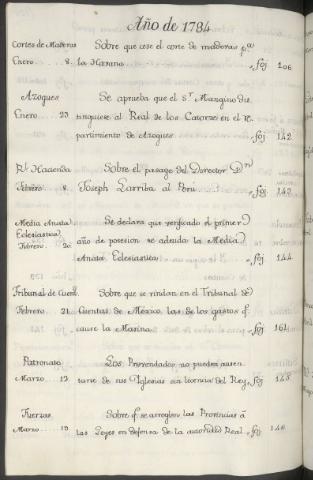 Año de 1784
Cortes de Maderas Sobre que cese el corte de maderas p.ª
Enero 8. la Havana foj 106
Azogues Se aprueba que el S.r Mangino dis
Enero 23 tinguiese al Real de los Catorze en el re
partimiento de Azogues foj 142
Rl. Hacienda Sobre el pasage del Director Dn
Febrero 8. Joseph Larriba al Perù foj 143
Media Anata Se declara que verificado el primer
Eclesiastica año de posesion se adeuda la Media
Febrero 20 Anata Eclesiastica foj 144
Tribunal de Cuent. Sobre que se rindan en el Tribunal de
Febrero 21 Cuentas de Mexico, las de los gastos q.
cause la Marina foj 161
Patronato Los Prevendados no pueden ausen
Marzo 12 tarse de sus Yglesias sin licencia del Rey foj 145
Fuerzas Sobre q. se arreglen las Provincias á
Marzo 19 las Leyes en defensa de la autoridad Real foj